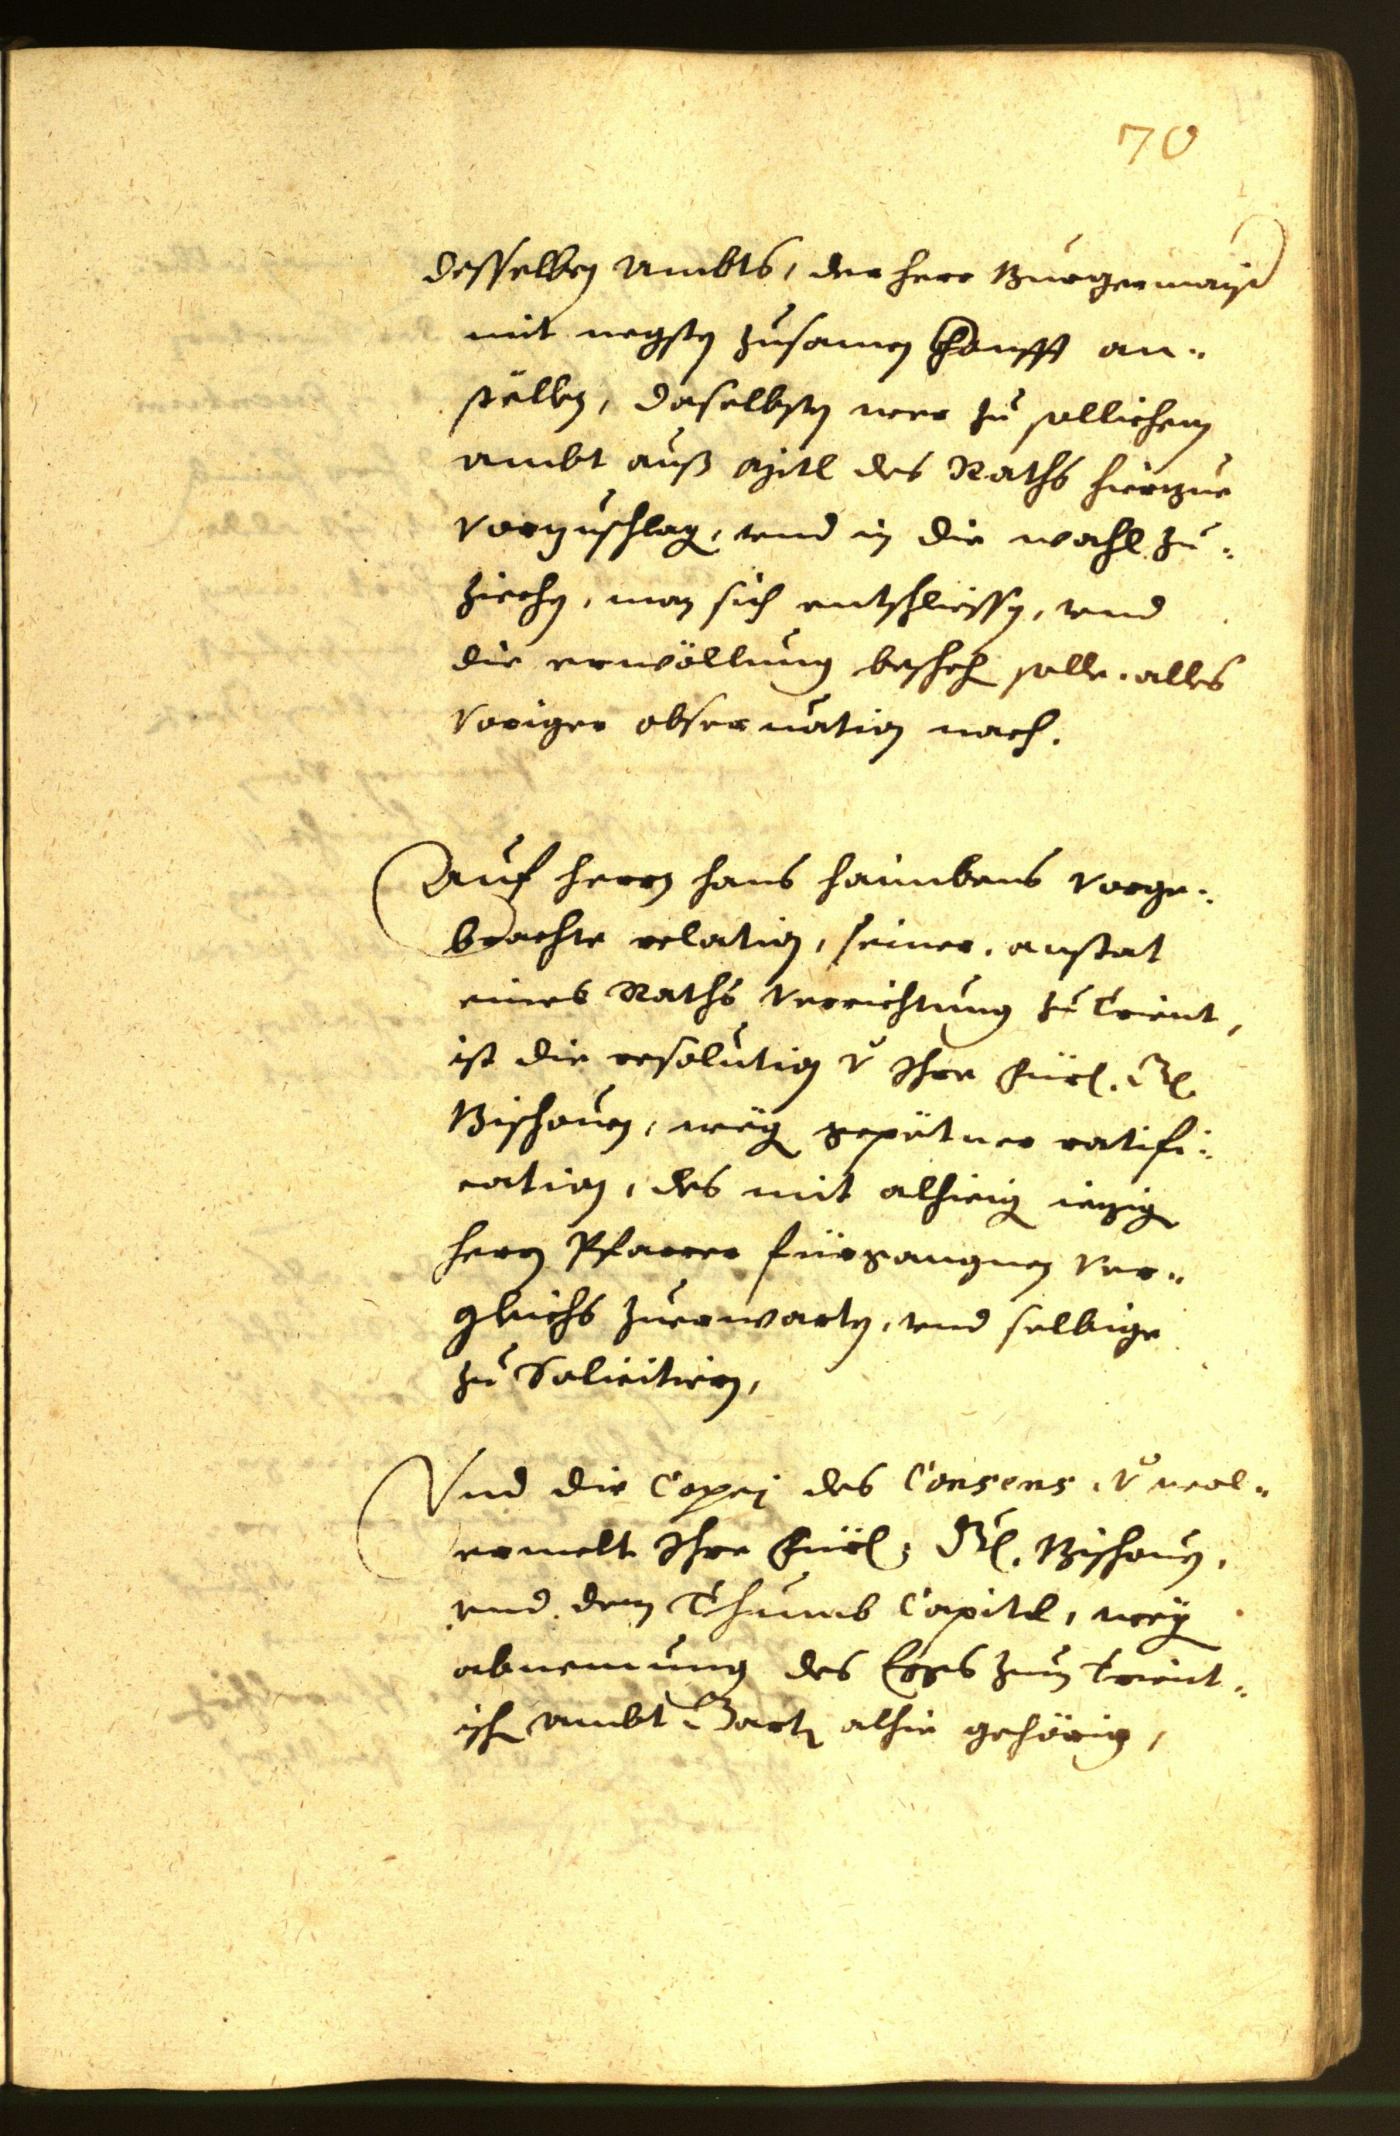 70
desselben Ambts, der herr Burgermaister
mit negsten zusamen khonfft an¬
stellen, daselbsten wer zu sollichem
ambt auß mitl des Raths hierzue
vorzuschlagen, vnd in die wahl zu¬
ziechen, man sich entschliessen, vnd
die erwöllung beschehen solle. alles
voriger obseruation nach.
Auf herrn Hans Haimbens vorge¬
brachte relation, seiner, anstat
eines Raths verrichtung zu Trient,
ist die resolution v Ihre Fürl. Gl.
Bischouen, wegen gepetner ratifi¬
cation, des mit alhieigen iezigen
herrn Pfarrer fürgangnen ver¬
gleichs zuerwarten, vnd selbige
zu Solicitiern,
Vnd die Copej des Consens, v wol¬
ermelt Ihre Fürl: Gl. Bischouen,
vnd dem Thumb Capitel, wegen
abnemung des zum Trient¬
isch ambt alhie gehörig,